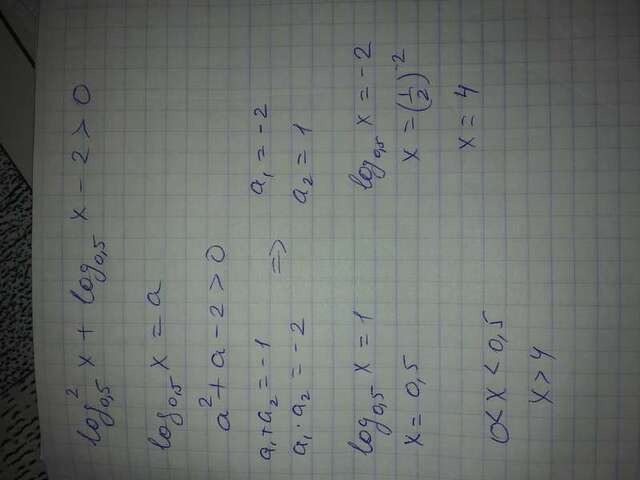 log²₀,₅ x + log₀,₅ x - 2 > 0
log₀,₅ x = a
a² + a - 2 > 0
a₁ + a₂ = -1
a₁ · a₂ = -2
⇒
a₁ = -2
a₂ = 1
log₀,₅ x = 1
x = 0,5
log₀,₅ x = -2
x = (1/2)⁻²
x = 4
0 < x < 0,5
x > 4